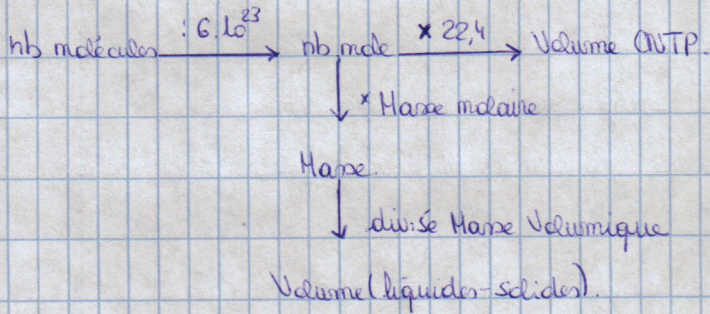 : 6.10²³ × 22,4
nb molécules → nb mole → Volume CNTP.
↓ × Masse molaire
Masse.
↓ divisé Masse Volumique
Volume (liquides-solides).